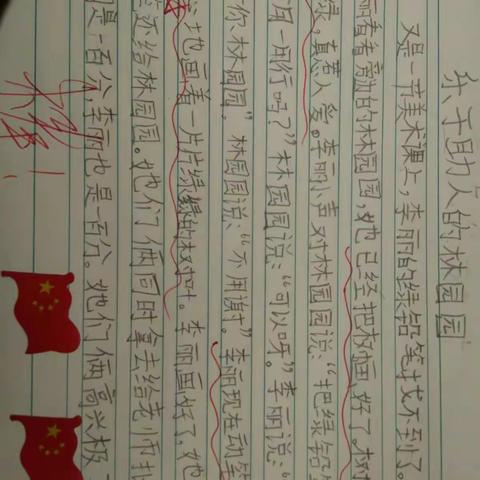 乐于助人的林园园
又是一节美术课上,李丽的绿铅笔找不到了。
丽看着旁边的林园园,她已经把 好了。树
绿,真惹人爱。李丽小声对林园园说:“把绿铅
用一用行吗?”林园园说:“可以呀。”李丽说:“
你,林园园”,林园园说:“不用谢”。李丽现在动笔
地画着一片片绿绿的树叶。李丽画好了,她
还给林园园。她们俩同时拿去给老师
是一百分,李丽也是一百分。她们俩高兴极